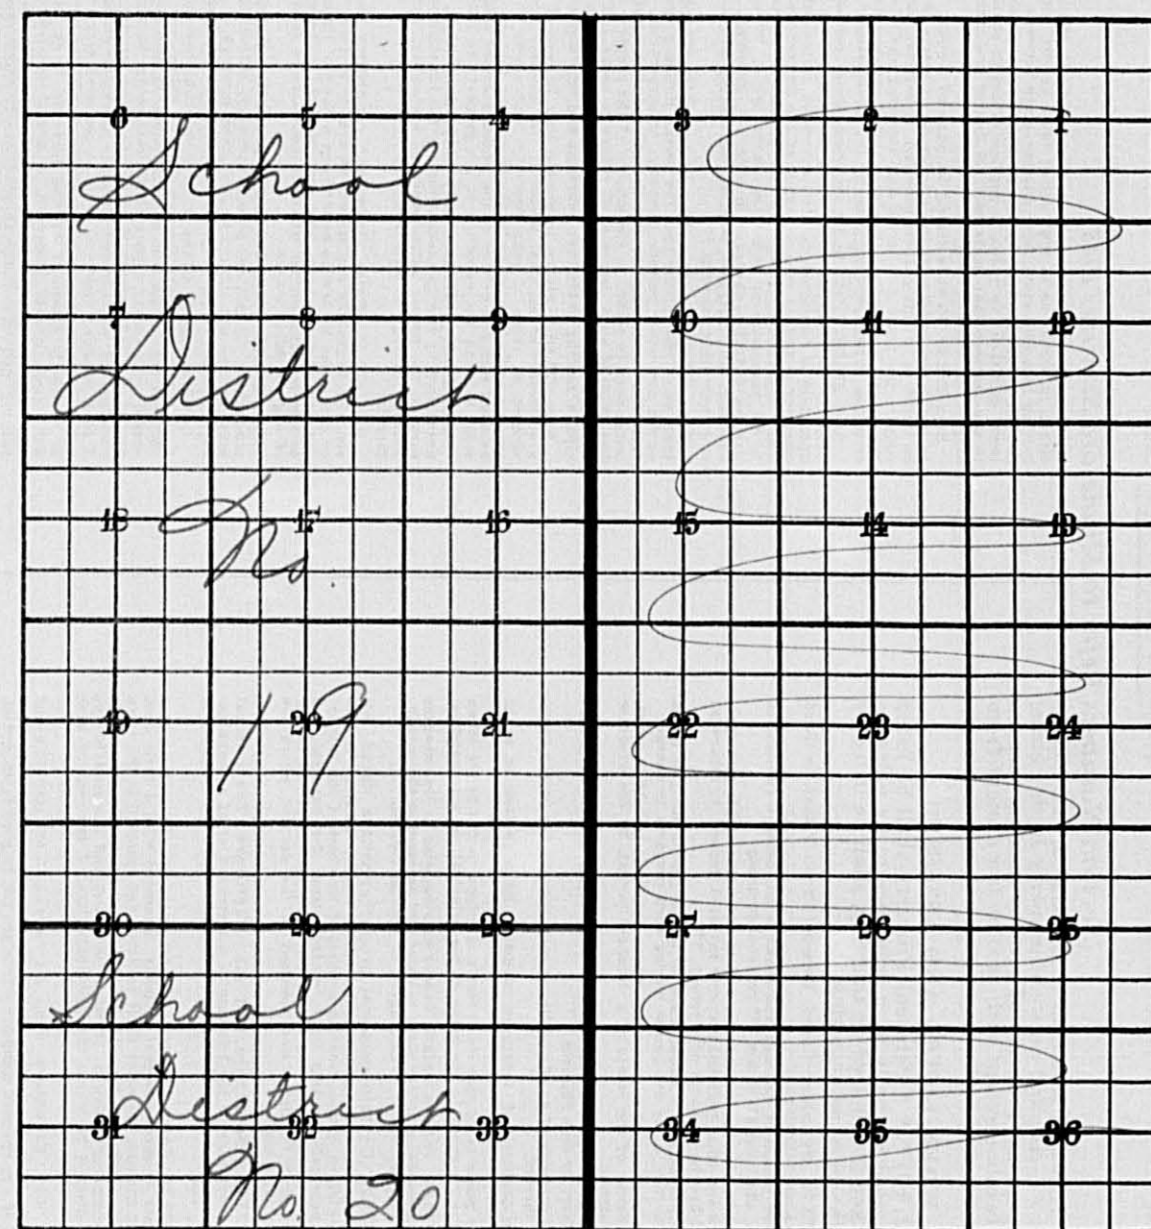 6 5 4 3 2 1
School
7 8 9 10 11 12
District
18 17 16 15 14 13
No.
19 20 21 22 23 24
19
30 29 28 27 26 25
School
District
31 32 33 34 35 36
No. 20